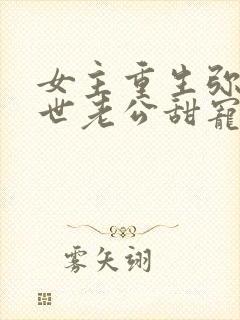 女主重生弥
世老公甜寵
雾矢翊